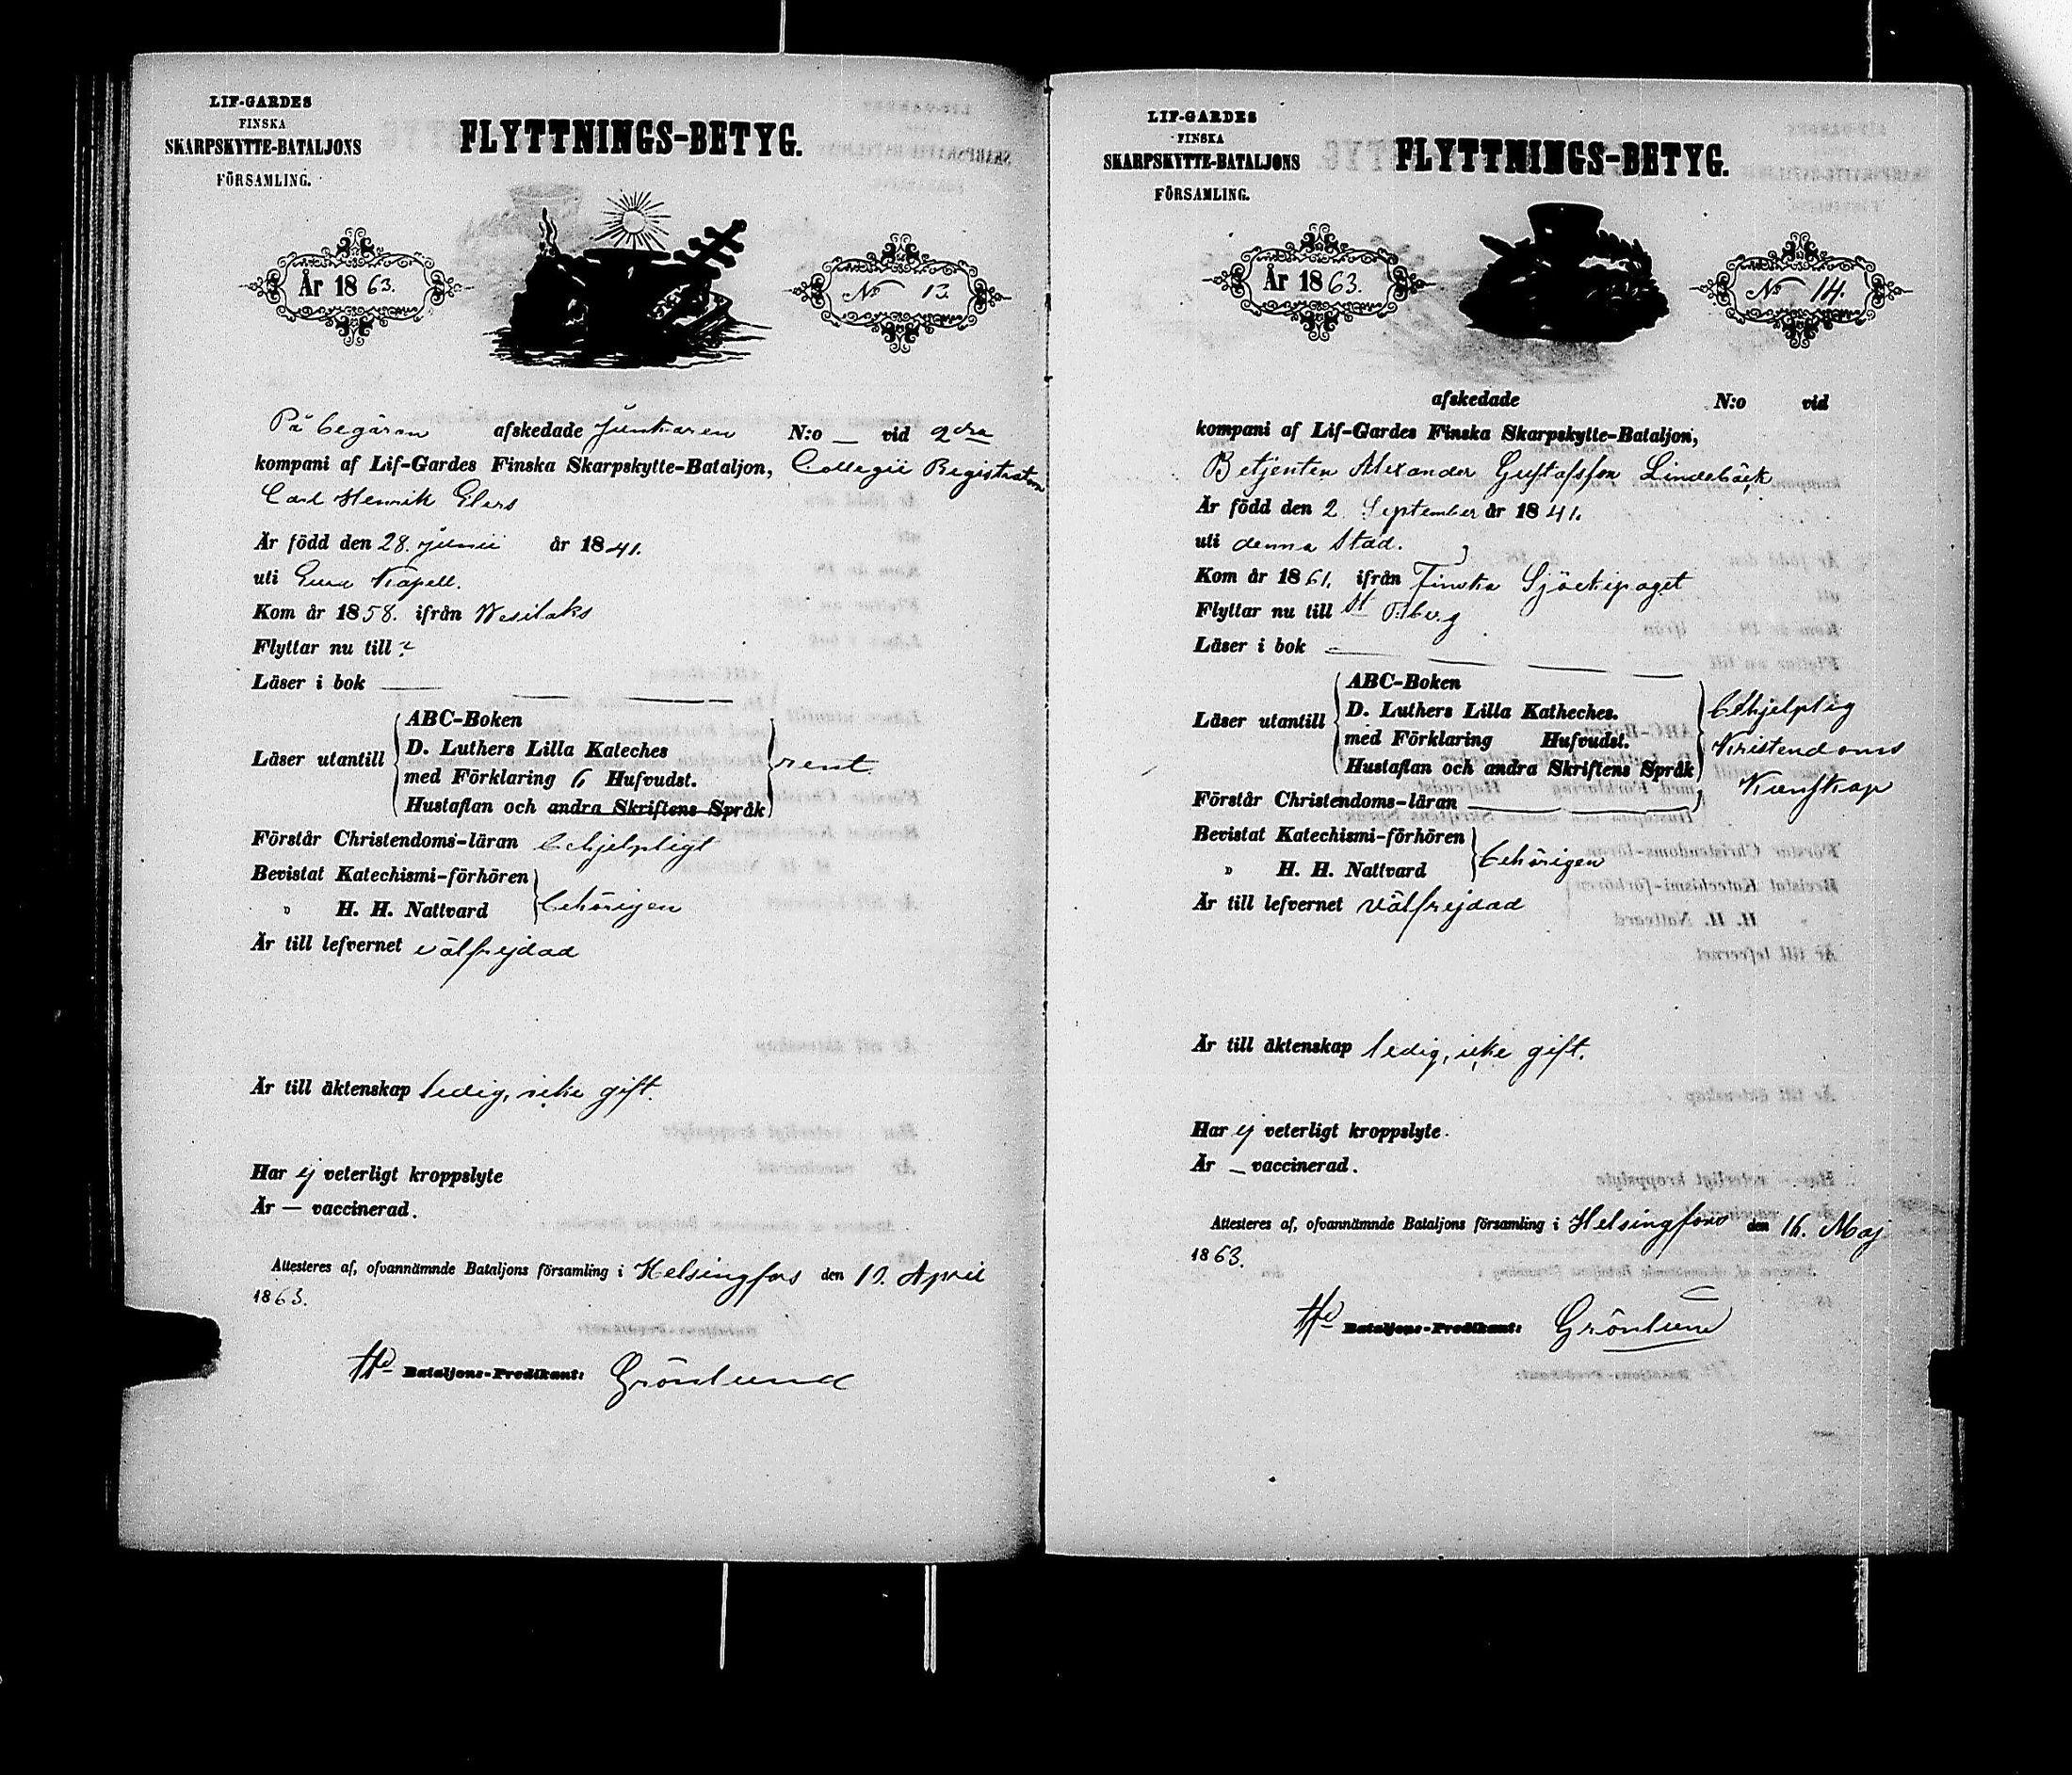 LIF-GARDES
FINSKA
SKARPSKYTTE-BATALJONS
FÖRSAMLING.
FLYTTNINGS-BETYG.
År 1863.
No 13.
På begäran afskedade Junkaren N:o — vid 2dra
kompani af Lif-Gardes Finska Skarpskytte-Bataljon, Collegii Registratorn
Carl Henrik Elers
Är född den 28. Junii år 1841.
uti Eura Kapell.
Kom år 1858. ifrån Wesilaks
Flyttar nu till ?
Läser i bok —
Läser utantill
ABC-Boken
D. Luthers Lilla Kateches
med Förklaring 6 Hufvudst.
Hustaflan och andra Skriftens Språk
rent.
Förstår Christendoms-läran behjelpligt
Bevistat Katechismi-förhören
„ H. H. Nattvard
behörigen
Är till lefvernet välfrejdad
Är till äktenskap ledig, icke gift.
Har ej veterligt kroppslyte
Är — vaccinerad.
Attesteres af, ofvannämnde Bataljons församling i Helsingfors den 19. April
1863.
Bataljons-Predikant: Grönlund
LIF-GARDES
FINSKA
SKARPSKYTTE-BATALJONS
FÖRSAMLING.
FLYTTNINGS-BETYG.
År 1863.
No 14.
afskedade N:o vid
kompani af Lif-Gardes Finska Skarpskytte-Bataljon,
Betjenten Alexander Gustafsson Lindebäck
Är född den 2 September år 1841.
uti denna Stad.
Kom år 1861. ifrån Finska Sjöekipaget
Flyttar nu till St Pbg
Läser i bok —
Läser utantill
ABC-Boken
D. Luthers Lilla Katheches.
med Förklaring Hufvudst.
Hustaflan och andra Skriftens Språk
behjelplig
Kristendoms
Kunskap
Förstår Christendoms-läran —
Bevistat Katechismi-förhören
„ H. H. Nattvard
behörigen
Är till lefvernet välfrejdad
Är till äktenskap ledig, icke gift.
Har ej veterligt kroppslyte.
Är — vaccinerad.
Attesteres af, ofvannämnde Bataljons församling i Helsingfors den 16. Maj
1863.
Bataljons-Predikant: Grönlund